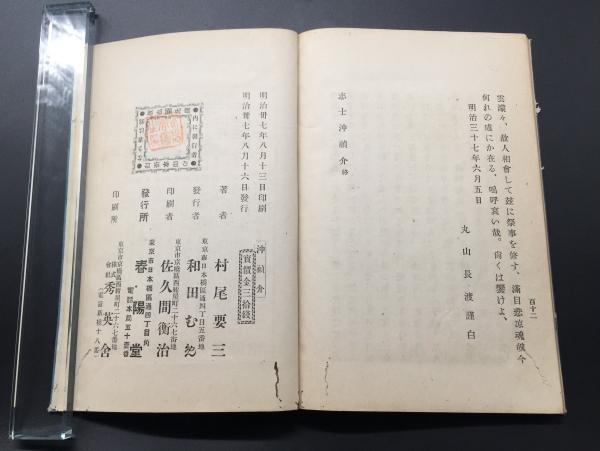 百十二
雲濛々、故人相會して玆に祭事を修す、滿目悲凉魂魄今
何れの處にか在る、嗚呼哀い哉。尙くは饗けよ、
明治三十七年六月五日
丸山長渡謹白
志士沖禎介 終
明治卅七年八月十三日印刷
明治卅七年八月十六日發行
沖禎介
實價金三拾錢
著者 村尾要三
東京市日本橋區通四丁目五番地
發行者 和田む
東京市京橋區西紺屋町二十六七番地
印刷者 佐久間衡治
東京市日本橋區通四丁目角
發行所 春陽堂
電話本局五十一番
東京市京橋區西紺屋町二十六七番地
印刷所 株式會社 秀英舍
(電話新橋十八番)